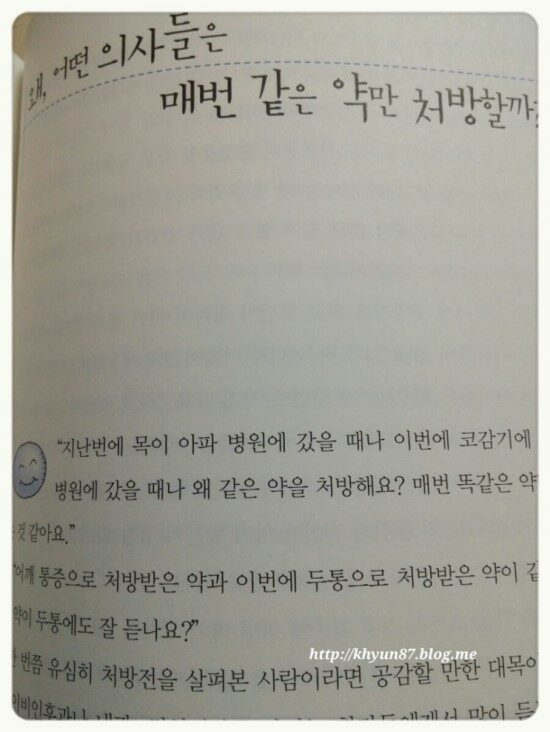 왜, 어떤 의사들은
매번 같은 약만 처방할까?
“지난번에 목이 아파 병원에 갔을 때나 이번에 코감기에
병원에 갔을 때나 왜 같은 약을 처방해요? 매번 똑같은 약
것 같아요.”
“어깨 통증으로 처방받은 약과 이번에 두통으로 처방받은 약이
약이 두통에도 잘 듣나요?”
번쯤 유심히 처방전을 살펴본 사람이라면 공감할 만한 대목이
http://khyun87.blog.me